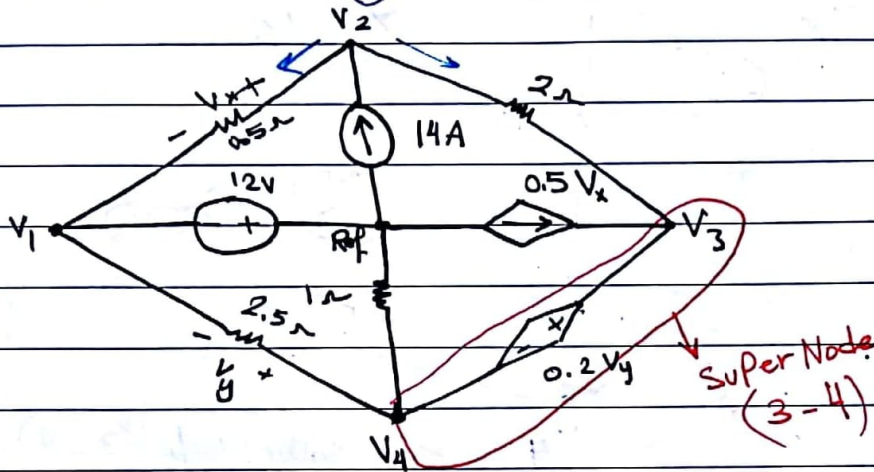 V2
Vx +
-
0.5Ω
2Ω
14A
12V
+
0.5 Vx
V1
Ref
V3
1Ω
2.5Ω
-
Vy
+
+
-
0.2 Vy
SuperNode
(3-4)
V4